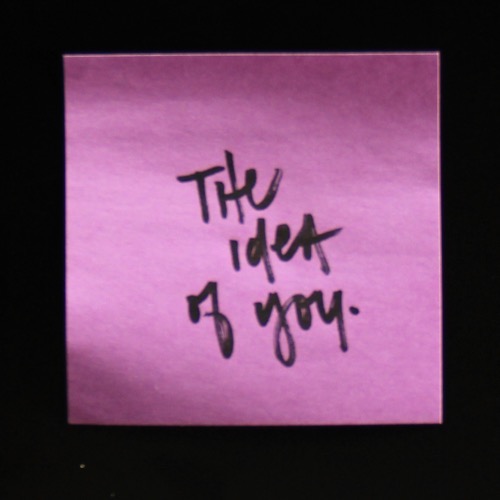 THe
ideA
of you.